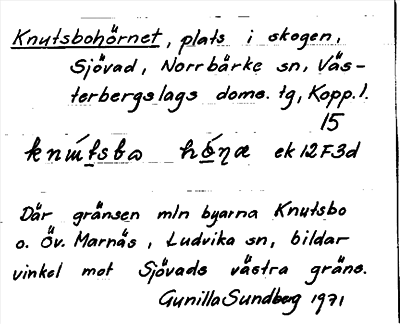 Knutsbohörnet, plats i skogen,
Sjövad, Norrbärke sn, Väs-
terbergslags doms. tg, Kopp. l.
15
ek 12F3d
Där gränsen mln byarna Knutsbo
o. Öv. Marnäs, Ludvika sn, bildar
vinkel mot Sjövads västra gräns.
Gunilla Sundberg 1971